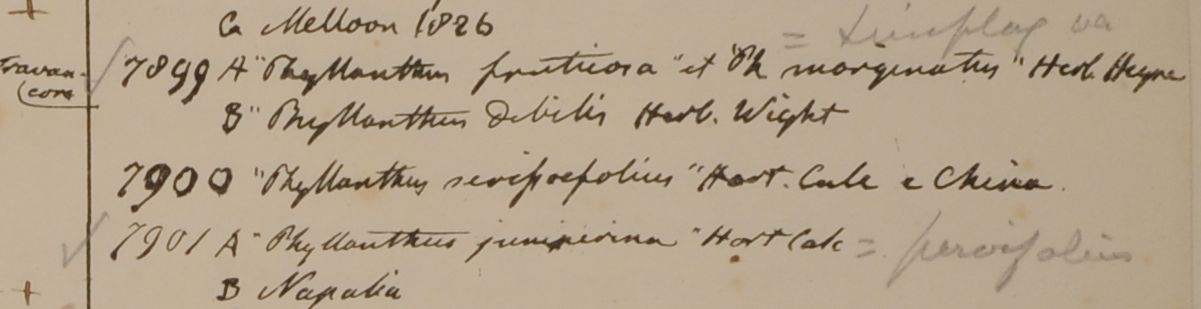 Ca Melloon 1826 = simplex va
Travan-
core
7899 A "Phyllanthus fruticosa" et "Ph marginatus" Herb. Heyne
B "Phyllanthus debilis Herb. Wight
7900 "Phyllanthus" Hort. Calc e China.
7901 A "Phyllanthus juniperina" Hort Calc = parvifolius
B Napalia